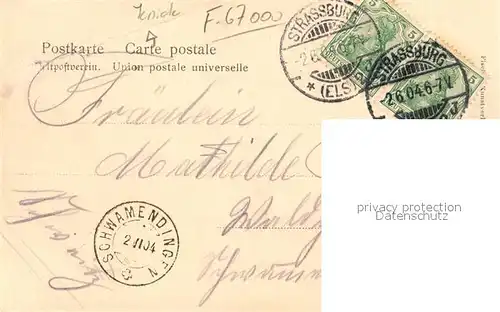 F. 67000
4
Postkarte — Carte postale
Weltpostverein. Union postale universelle
STRASSBURG
2.6.04.6-7V
* (ELS)
5
STRASSBURG
2.6.04.6-7V
5
Fräulein
Mathilde
privacy protection
Datenschutz
Schweiz
SCHWAMENDINGEN
2 VI 04
Schwamen